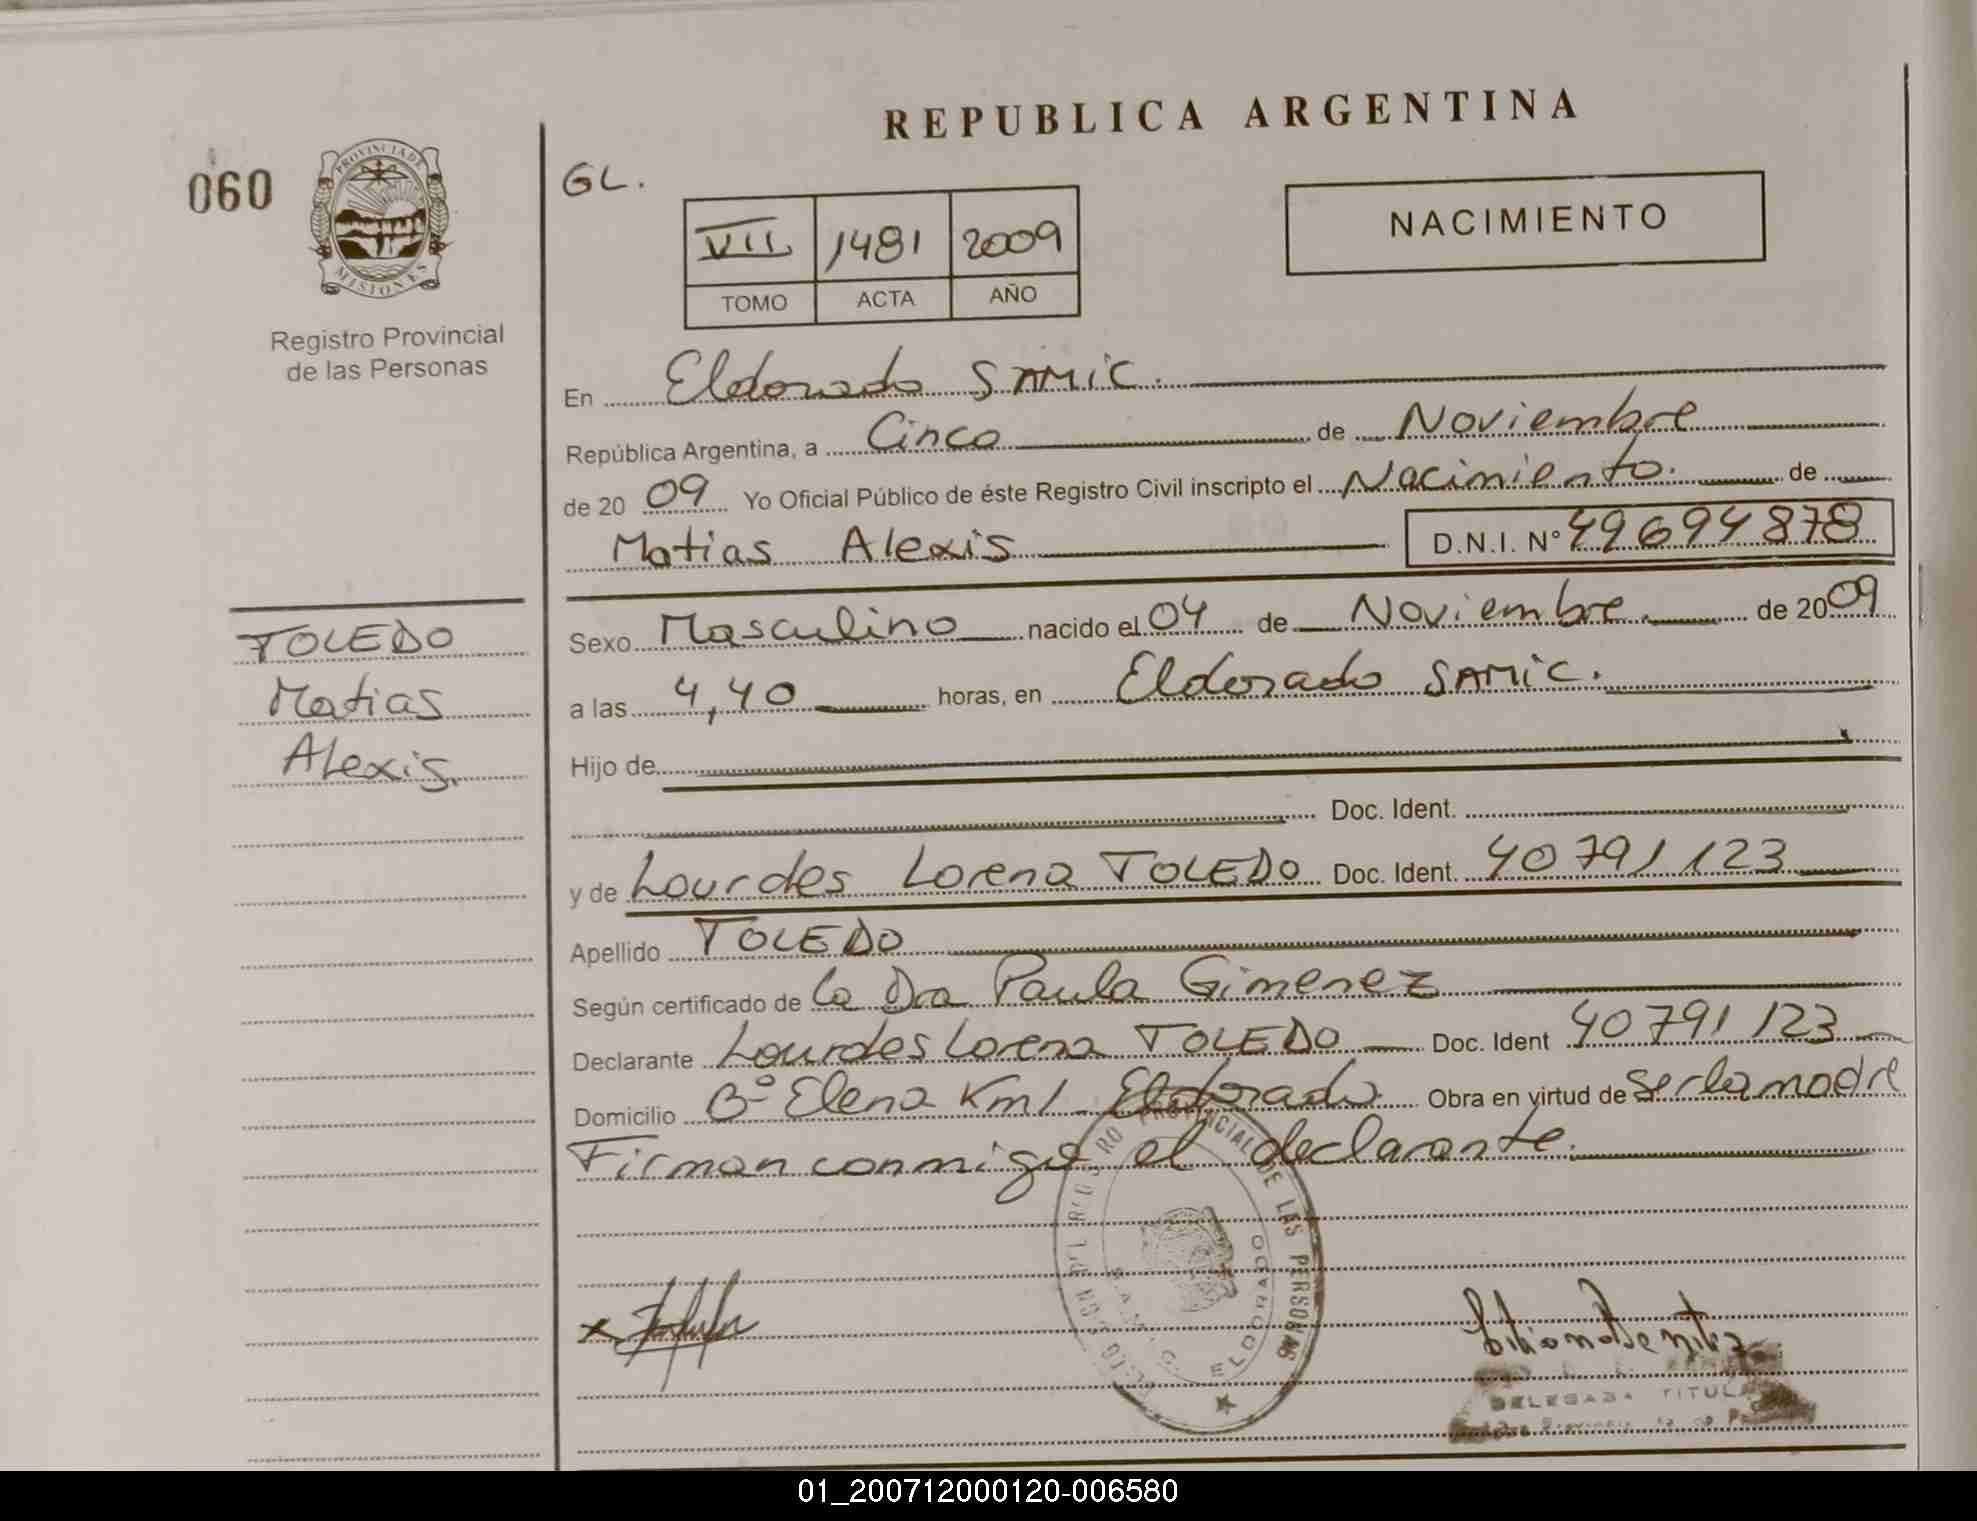 REPUBLICA ARGENTINA
060
PROVINCIA DE
MISIONES
Registro Provincial
de las Personas
GL.
VII 1481 2009
TOMO ACTA AÑO
NACIMIENTO
En Eldorado SAMIC.
República Argentina, a Cinco de Noviembre
de 20 09 Yo Oficial Público de éste Registro Civil inscripto el Nacimiento. de
Matias Alexis D.N.I. N° 49694878
TOLEDO
Matias
Alexis.
Sexo Masculino nacido el 04 de Noviembre. de 2009
a las 4,40 horas, en Eldorado SAMIC.
Hijo de
Doc. Ident.
y de Lourdes Lorena TOLEDO Doc. Ident. 40791123
Apellido TOLEDO
Según certificado de la Dra Paula Gimenez
Declarante Lourdes Lorena TOLEDO Doc. Ident 40791123
Domicilio Bº Elena Km1 Eldorado. Obra en virtud de ser la madre
Firman conmigo el declarante.
PROVINCIAL DE LAS PERSONAS
ELDORADO
DELEGADA TITULAR
01_200712000120-006580